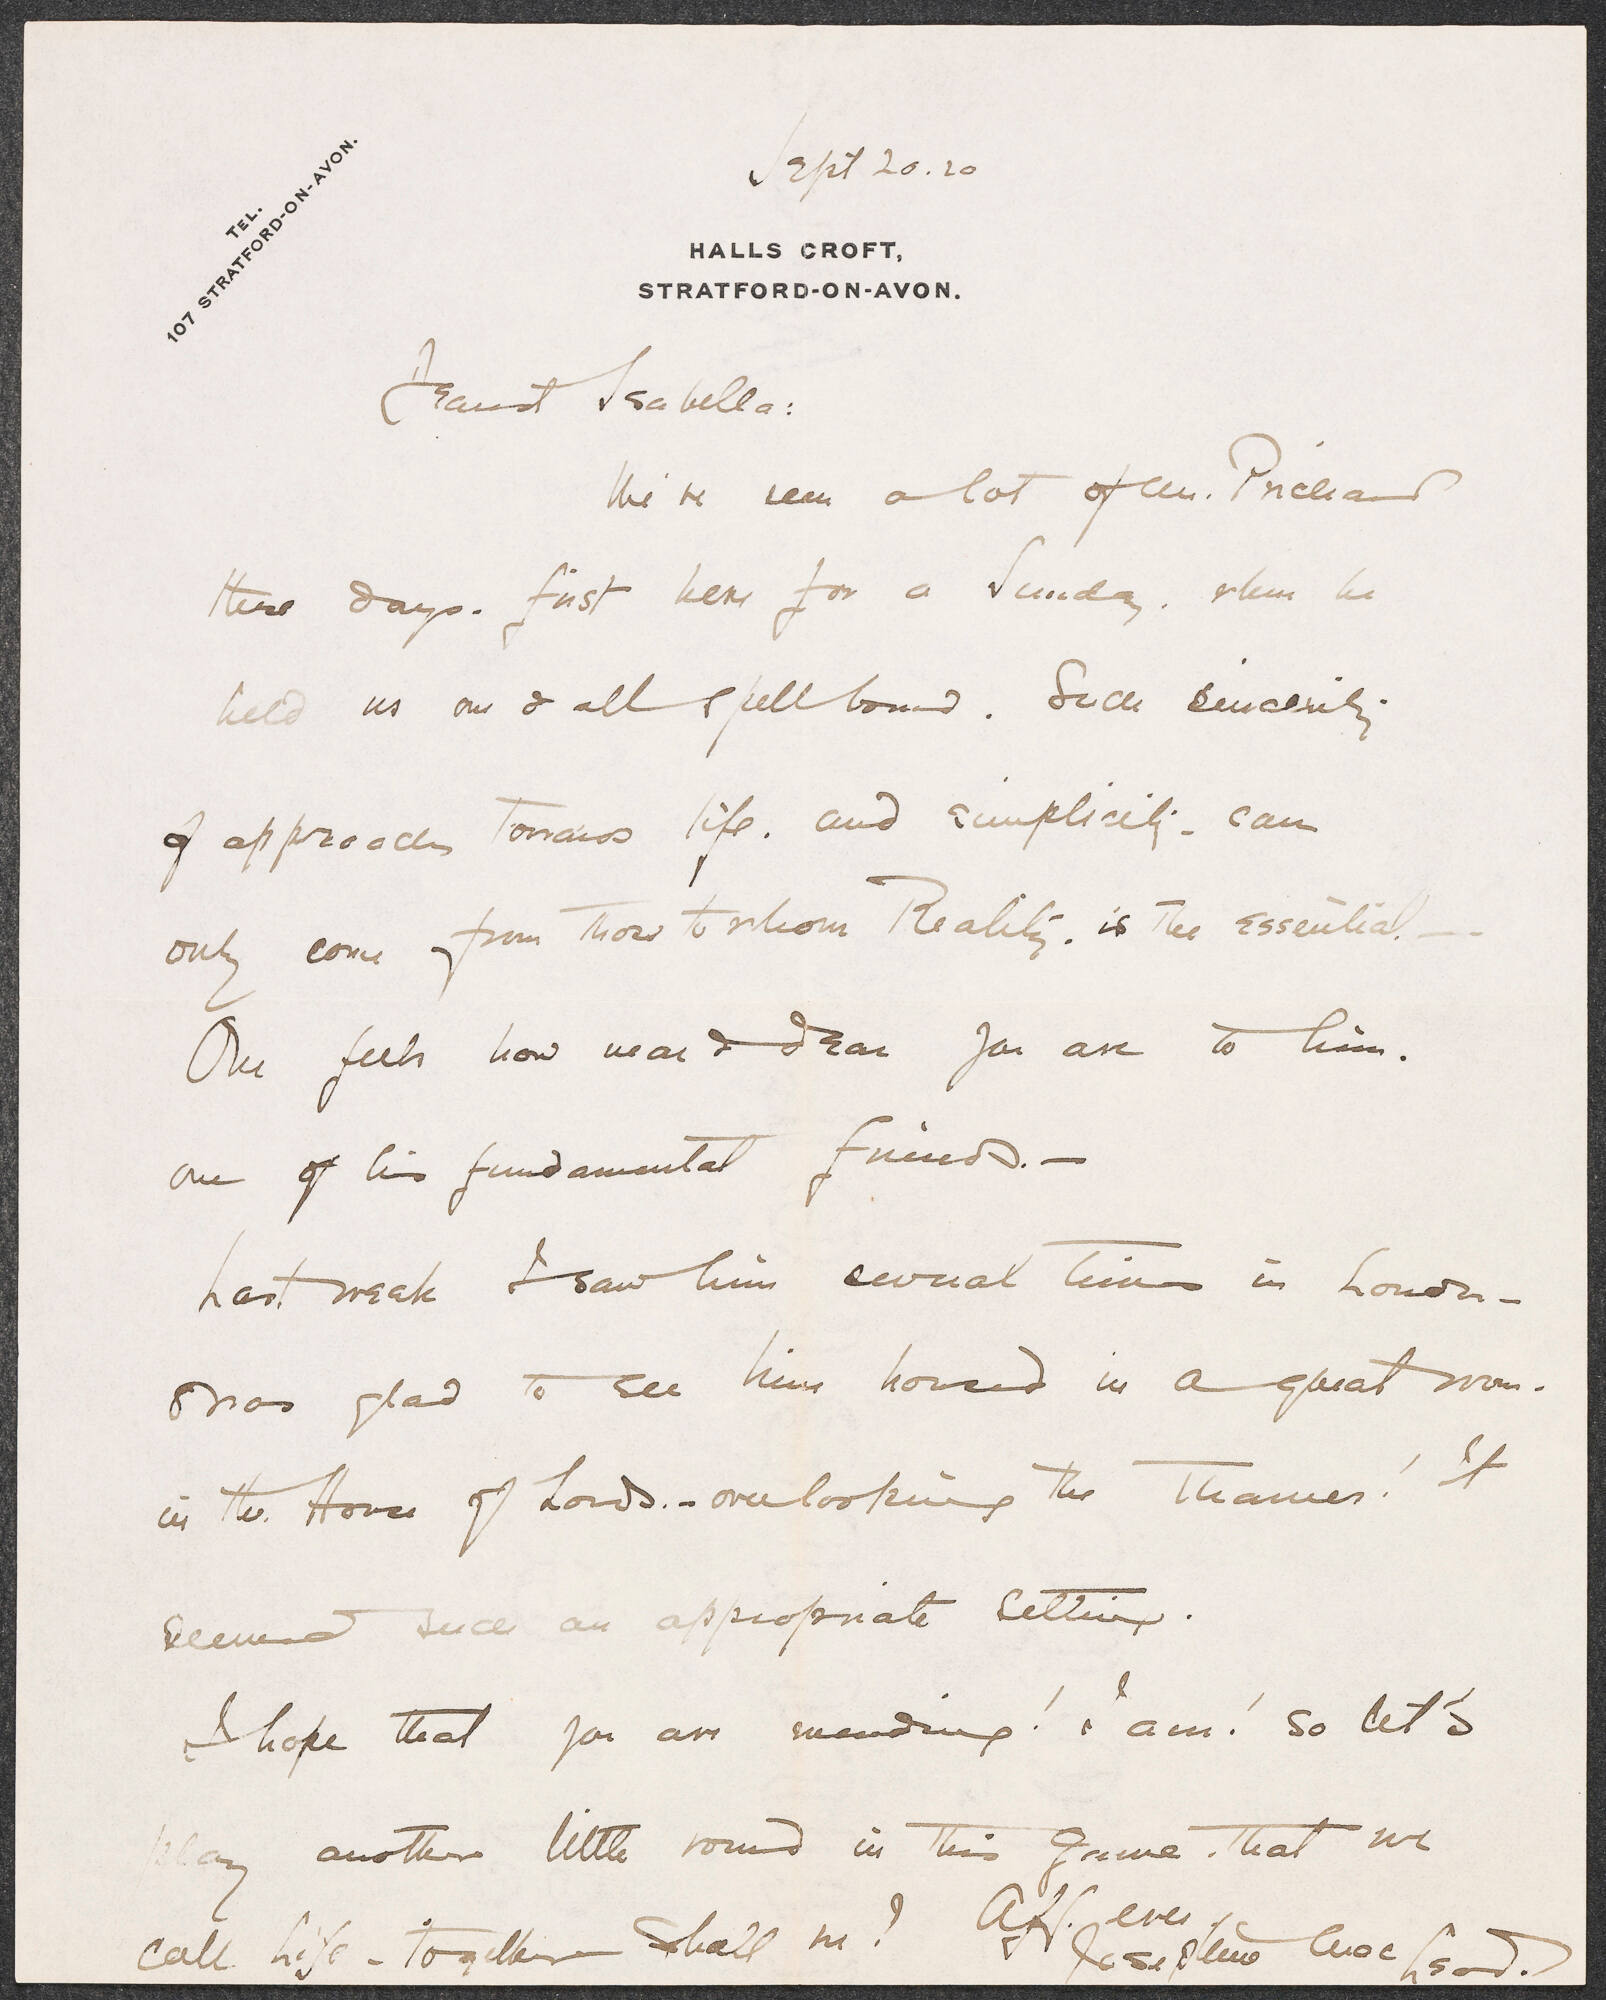 Sept 20.20
TEL.
107 STRATFORD-ON-AVON.
HALLS CROFT,
STRATFORD-ON-AVON.
Dearest Isabella:
We've seen a lot of Mr. Prichard
these days. first here for a Sunday. when he
held us one & all spell bound. Such sincerity
of approach towards life. and simplicity - can
only come from those to whom Reality. is the essential. —
One feels how near & dear you are to him.
one of his fundamental friends. —
Last week I saw him several times in London -
& was glad to see him housed in a great room.
in the House of Lords. - overlooking the Thames! It
seemed such an appropriate setting.
I hope that you are mending! i am! so let's
play another little round in this game that we
call life - together shall we? Aff. ever
Josephine MacLeod.